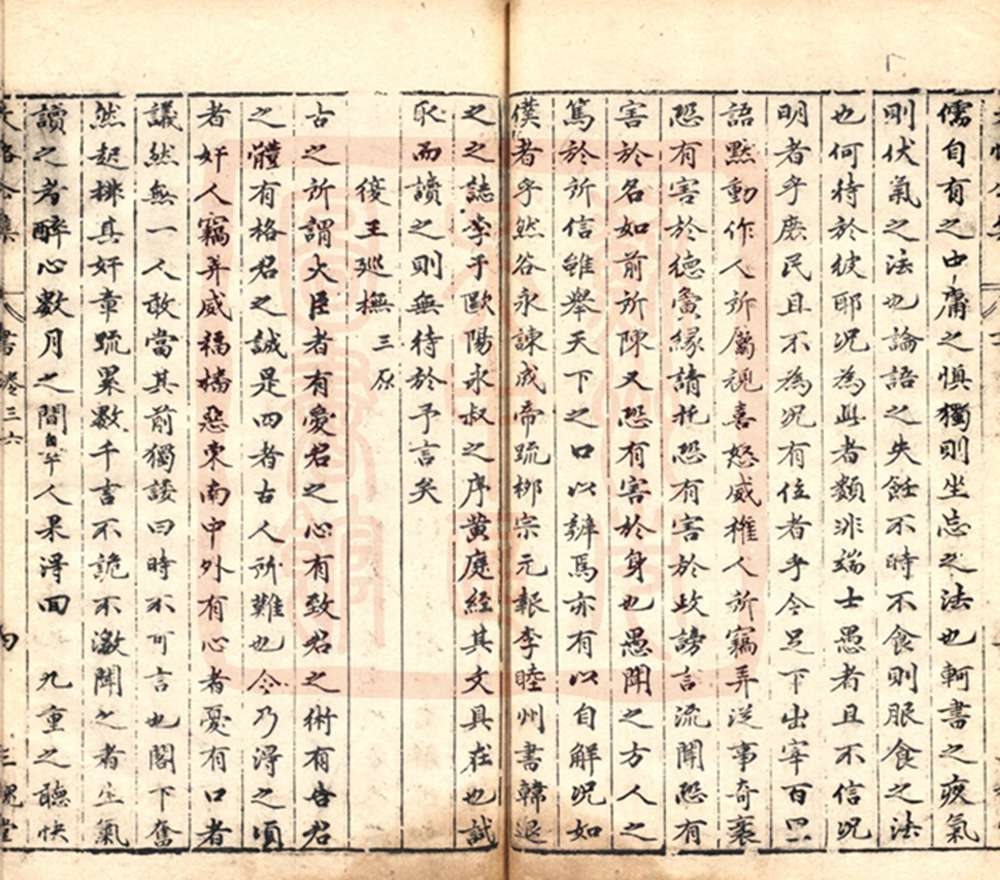 儒自有之中庸之慎獨則坐忘之法也軻書之夜氣
剛伏氣之法也論語之失飪不時不食則服食之法
也何待於彼耶况為此者類非端士愚者且不信况
明者乎庶民且不為况有位者乎今足下出宰百里
語默動作人所屬視喜怒威權人所竊弄淫事奇衺
恐有害於德夤緣請托恐有害於政謗言流聞恐有
害於名如前所陳又恐有害於身也愚聞之方人之
篤於所信雖舉天下之口以辨焉亦有以自解况如
僕者乎然谷永諫成帝疏柳宗元報李睦州書韓退
之之誌李于歐陽永叔之序黃庭經其文具在也試
取而讀之則無待於予言矣
復王巡撫三原
古之所謂大臣者有愛君之心有致君之術有告君
之體有格君之誠是四者古人所難也今乃得之頃
者奸人竊弄威福構惡東南中外有心者憂有口者
議然無一人敢當其前獨諉曰時不可言也閣下奮
然起排其奸章疏累數千言不詭不激聞之者生氣
讀之者醉心數月之間
人果得回 九重之聽快